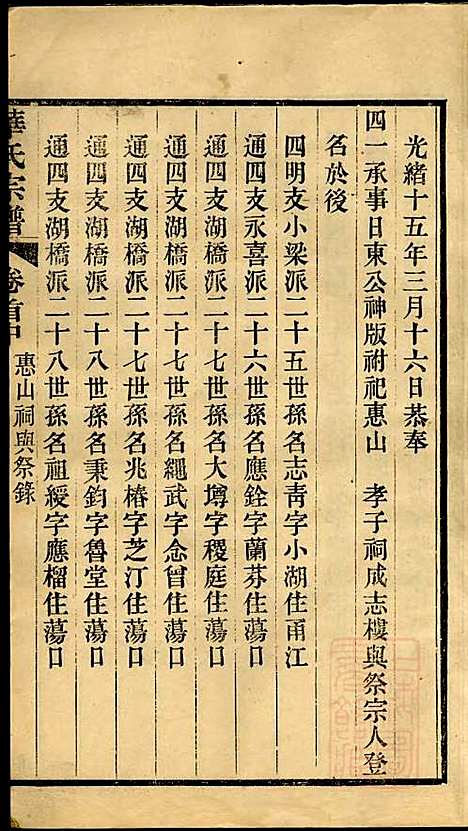 光緒十五年三月十六日恭奉
四一承事日東公神版祔祀惠山 孝子祠成志樓與祭宗人登
名於後
四明支小梁派二十五世孫名志靑字小湖住甬江
通四支永喜派二十六世孫名應銓字蘭芬住蕩口
通四支湖橋派二十七世孫名大墫字稷庭住蕩口
通四支湖橋派二十七世孫名繩武字念曾住蕩口
通四支湖橋派二十七世孫名兆椿字芝汀住蕩口
通四支湖橋派二十八世孫名秉鈞字魯堂住蕩口
通四支湖橋派二十八世孫名祖綬字應榴住蕩口
華氏宗譜 卷首中 惠山祠與祭錄